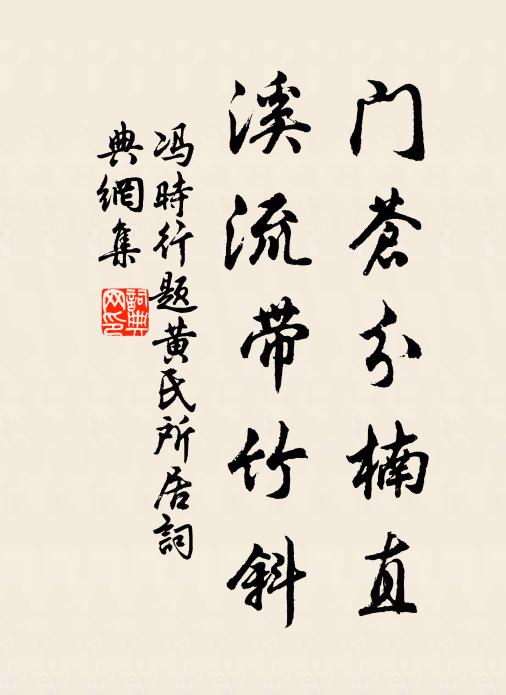 门苍分楠直
溪流带竹斜
冯時行题黄氏所居詞
典網集
詞典網印